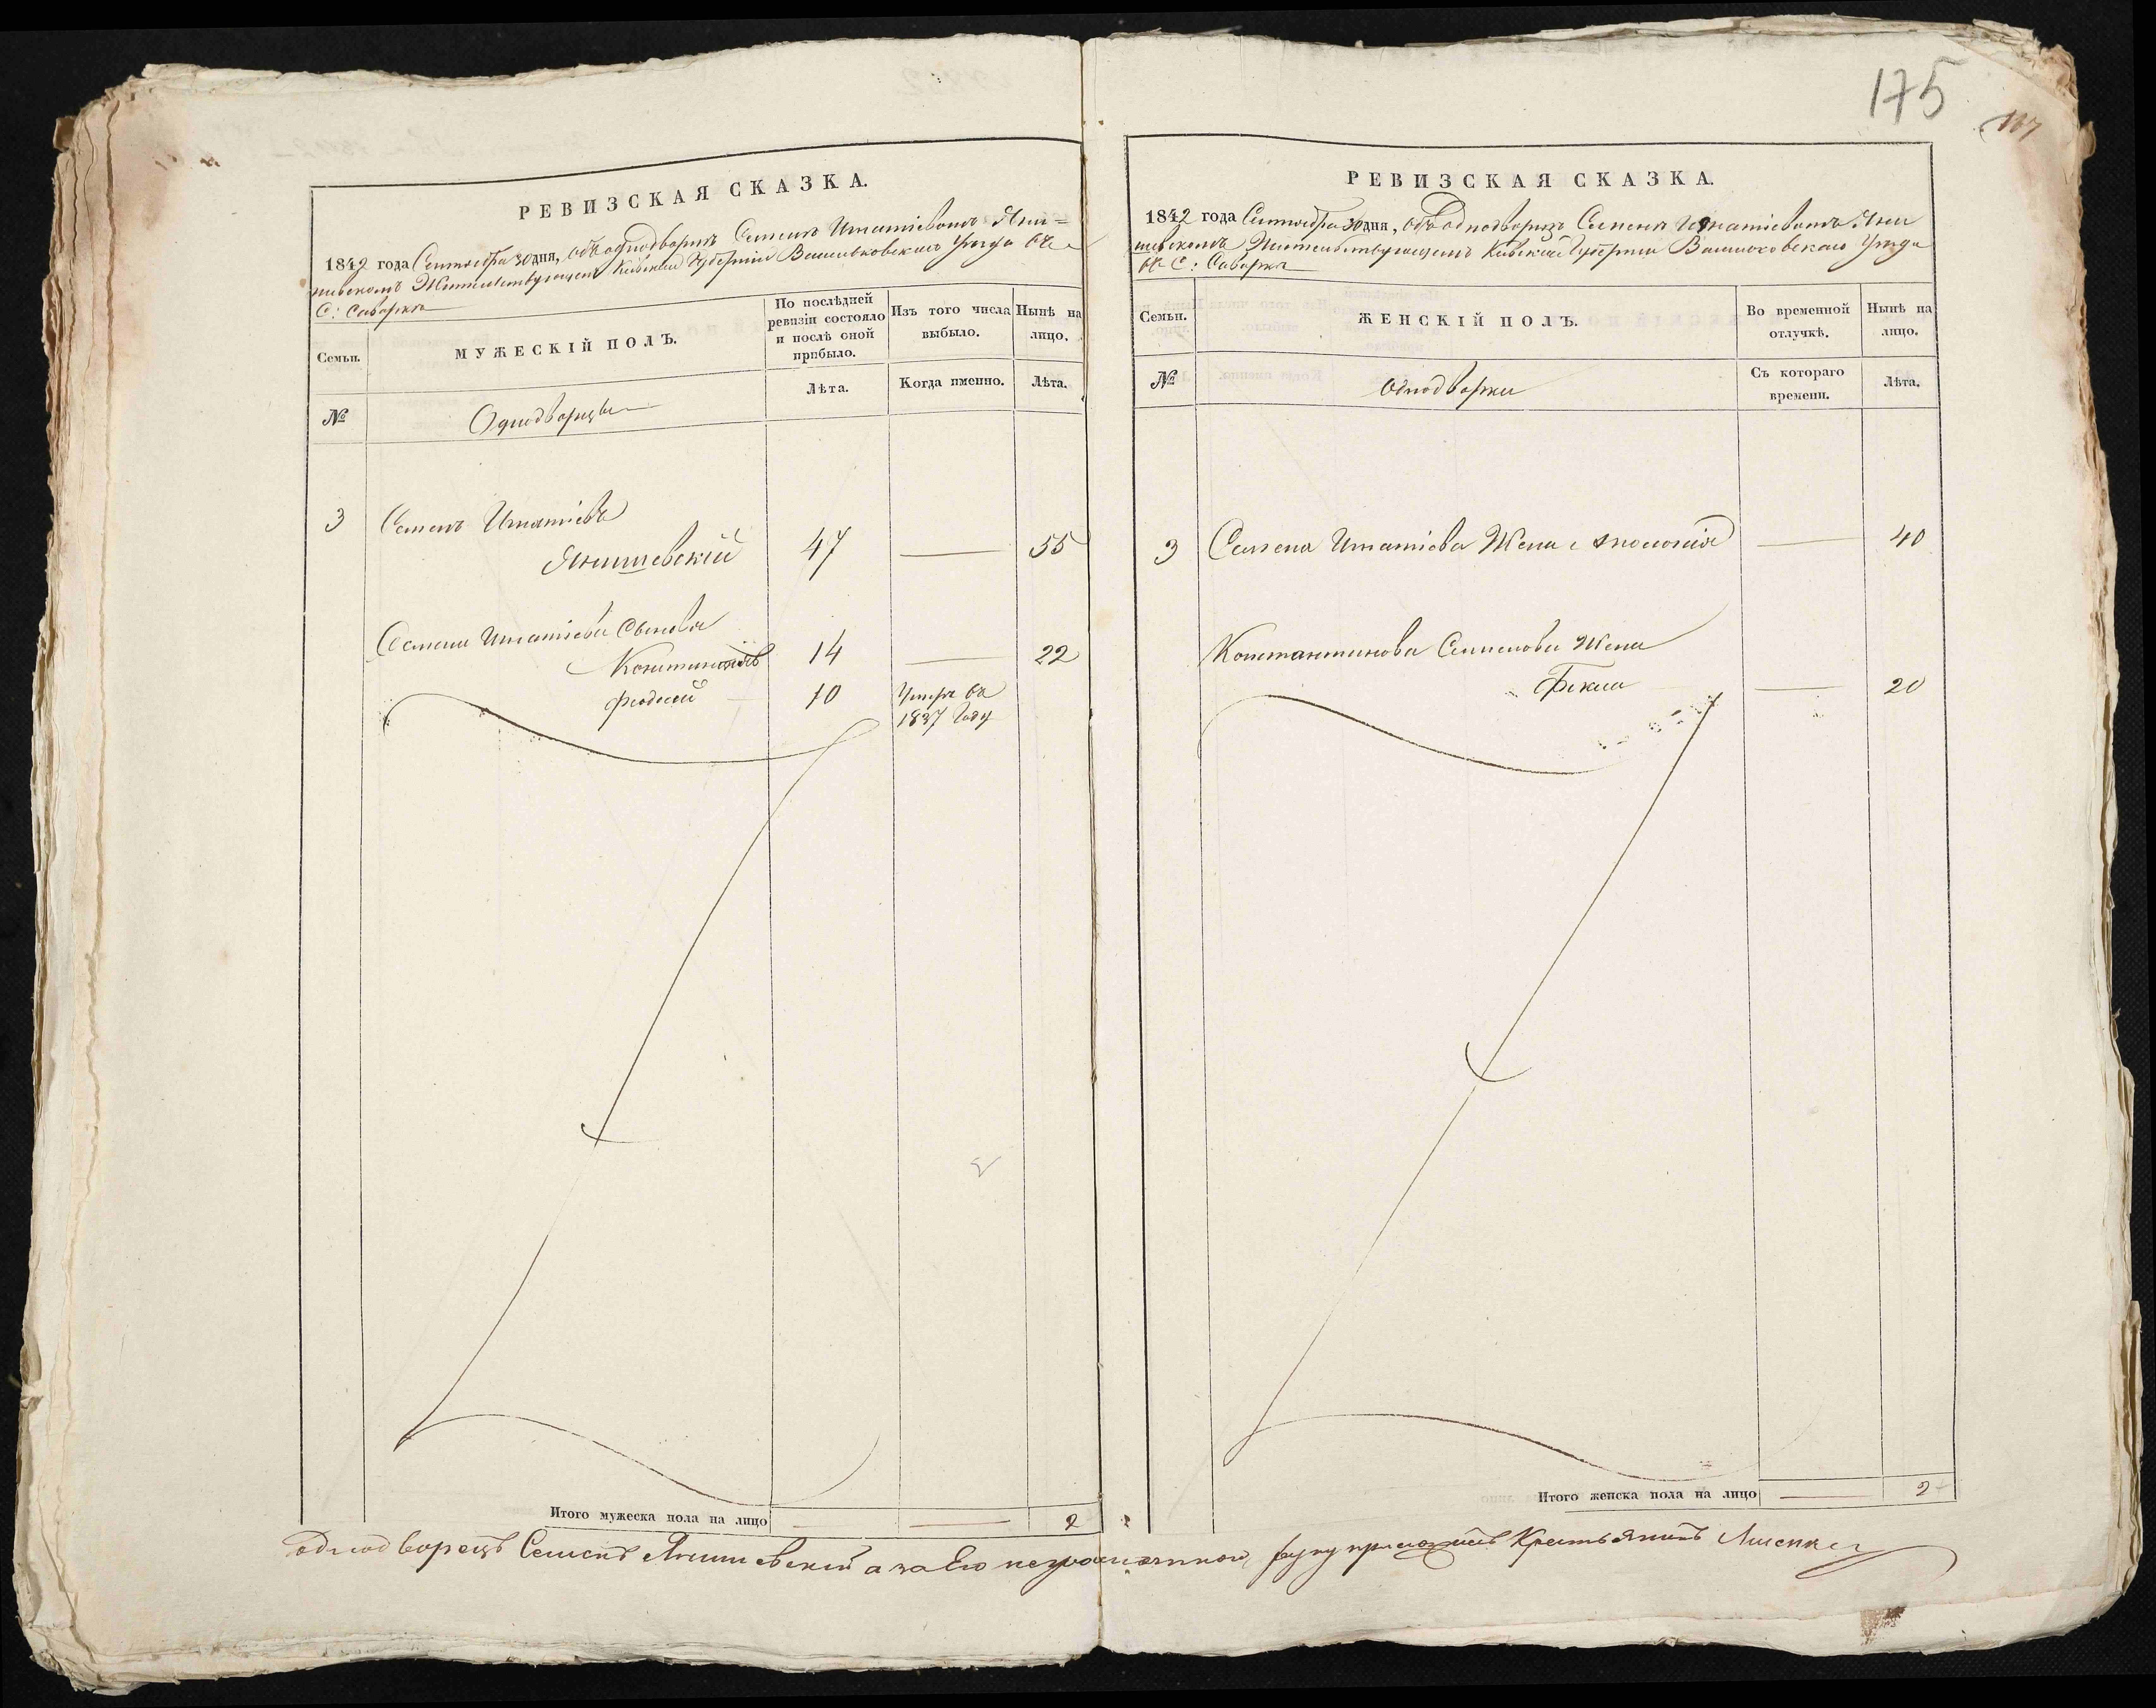 175
167
РЕВИЗСКАЯ СКАЗКА.
1842 года Сентября 30 дня, объ однодворцѣ Семенѣ Игнатіевомъ Яни=
шевскомъ Жительствующемъ Кіевской Губерніи Васильковскаго Уѣзда въ
С: Саваркѣ
Семьи.
МУЖЕСКІЙ ПОЛЪ.
По послѣдней
ревизіи состояло
и послѣ оной
прибыло.
Изъ того числа
выбыло.
Нынѣ на
лицо.
№
Однодворцы
Лѣта.
Когда именно.
Лѣта.
3
Семенъ Игнатіевъ
Янишевскій
47
55
Семена Игнатіева Сыновья
Константинъ
14
22
Феодосій
10
Умеръ въ
1837 Году
Итого мужеска пола на лицо
2
РЕВИЗСКАЯ СКАЗКА.
1842 года Сентября 30 дня, объ однодворцѣ Семенѣ Игнатіевомъ Яни
шевскомъ Жительствующемъ Кіевской Губерніи Васильковскаго Уѣзда
въ С: Саваркѣ
Семьи.
ЖЕНСКІЙ ПОЛЪ.
Во временной
отлучкѣ.
Нынѣ на
лицо.
№
Однодворки
Съ котораго
времени.
Лѣта.
3
Семена Игнатіева Жена
40
Константинова Семенова Жена
Фекла
20
Итого женска пола на лицо
2
однодворецъ Семенъ Янишевскій а за Его неграмотного руку приложилъ Крестьянинъ